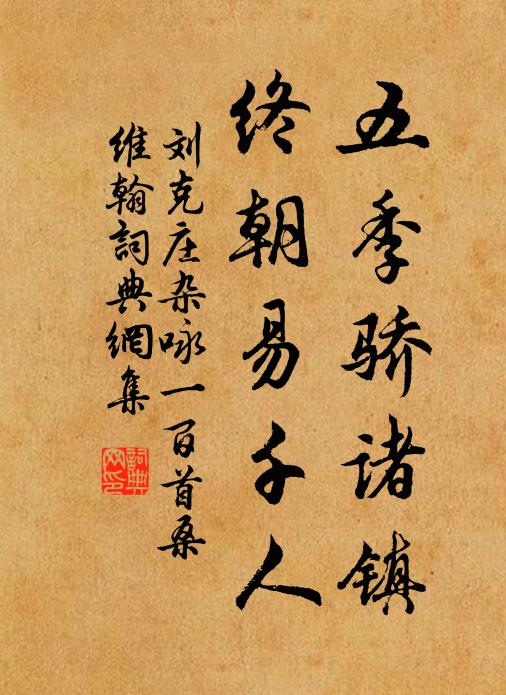 五季骄诸镇
终朝易千人
刘克庄杂咏一百首桑
维翰詞典網集
詞典網印